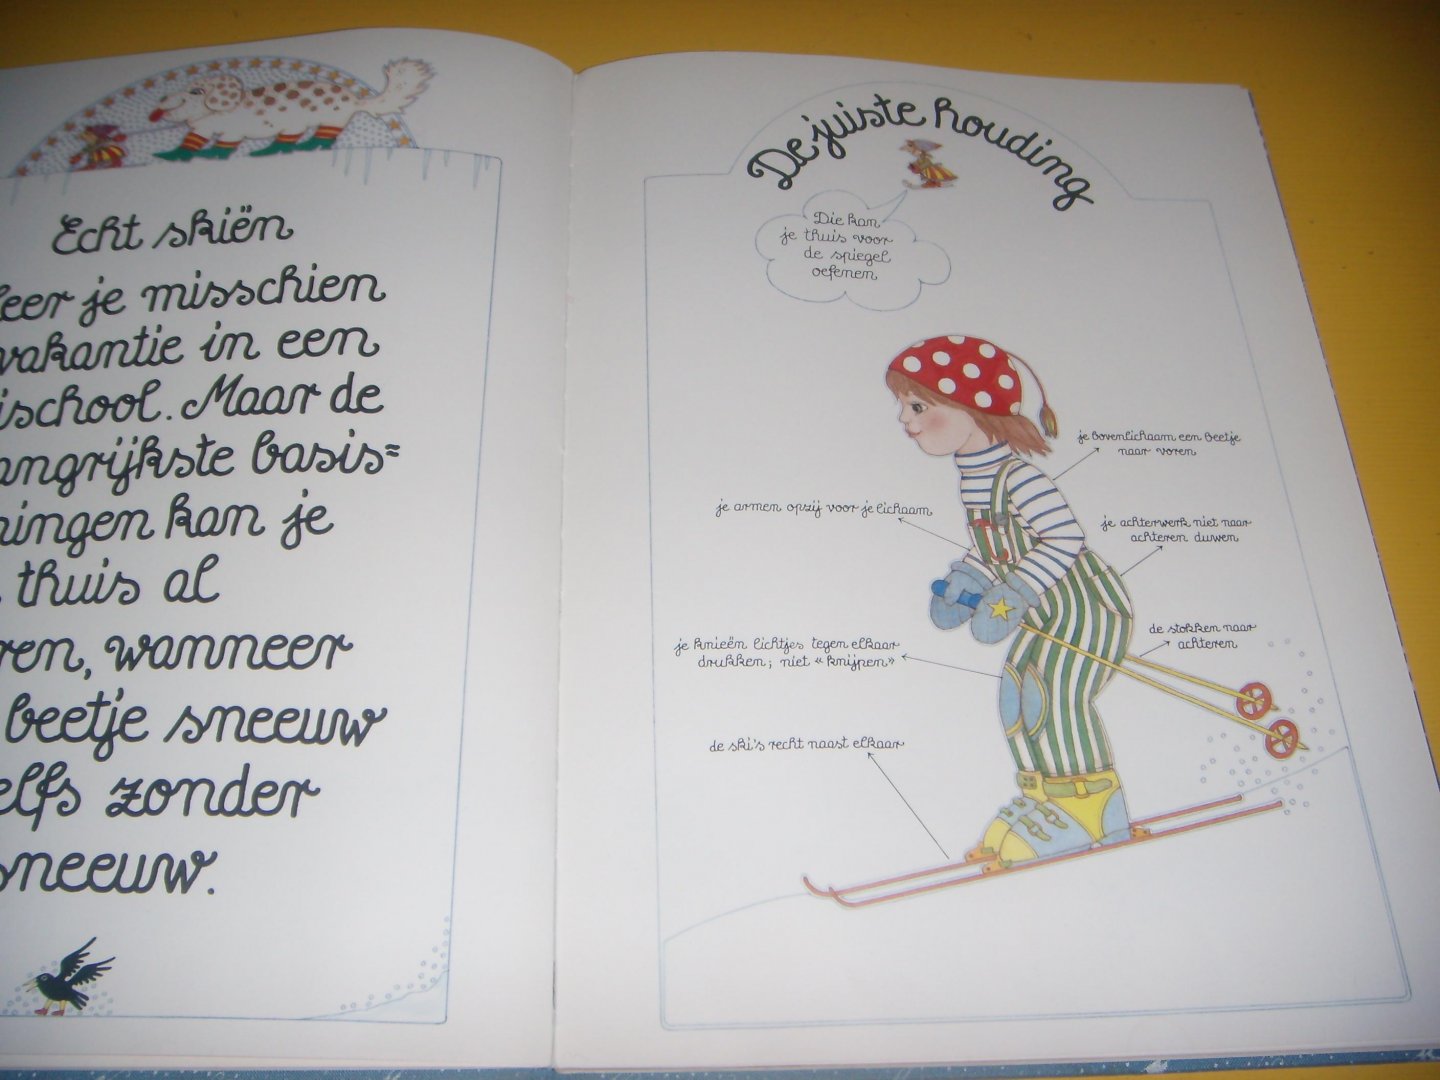 Echt skiën
leer je misschien
vakantie in een
ischool. Maar de
angrijkste basis=
ningen kan je
thuis al
ren, wanneer
beetje sneeuw
elfs zonder
sneeuw.
De juiste houding
Die kan
je thuis voor
de spiegel
oefenen
je bovenlichaam een beetje
naar voren
je armen opzij voor je lichaam
je achterwerk niet naar
achteren duwen
de stokken naar
achteren
je knieën lichtjes tegen elkaar
drukken; niet «knijpen»
de ski's recht naast elkaar